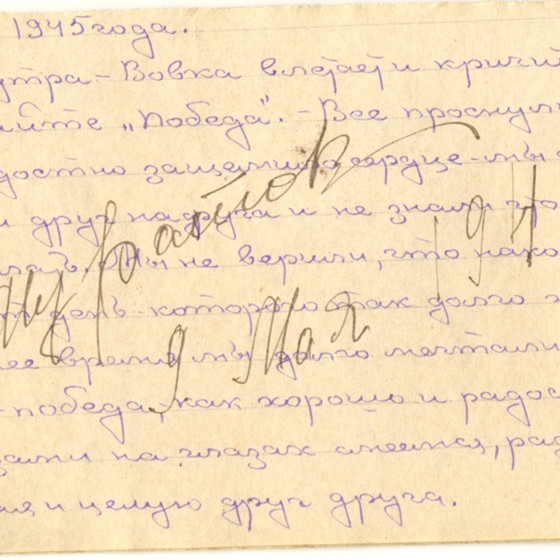 1945 года.
утра - Вовка влетает и кричит
йте „Победа". - Все проснул
достно защемило сердце - мы с
и друг на друга и не знали что
Мы не верили, что нако
т день которого так долго
ее время мы долго мечтали
- победа, как хорошо и радос
зами на глазах смеемся, рад
ся и целую друг друга.
9 Мая 194